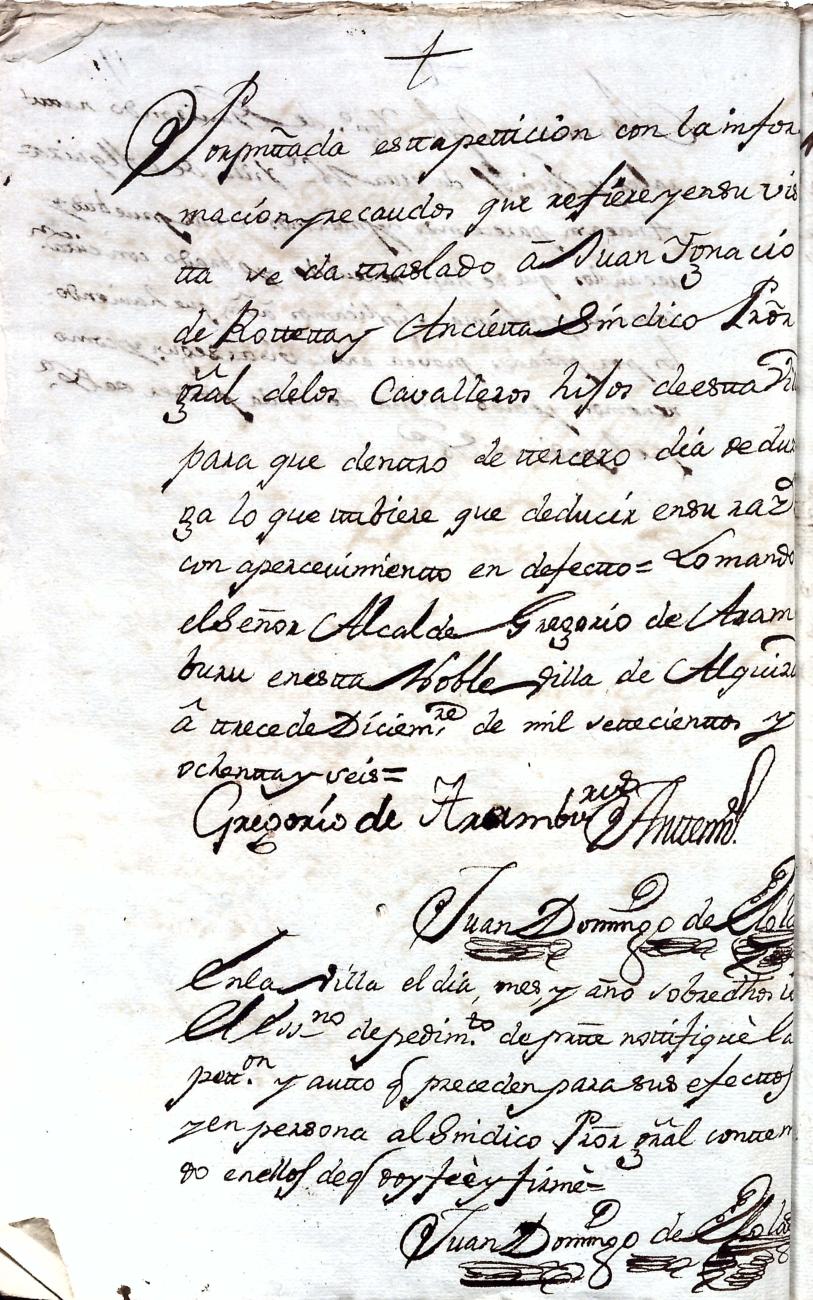 Por presentada estta pettición con la infor
mación y recaudos que refiere y en su vis
tta se da ttraslado â Juan Ignacio
de Rottetta y Ancietta Síndico Prõr
gñal delos Cavalleros hijos de estta
para que denttro de ttercero día dedus
ga lo que ttubiere que deducir en su raz
con apercevimientto en defectto= Lo mandó
el Señor Alcalde Gregorío de Aram
buru en estta Noble Villa de Alquiza
â ttrece de Diciem.re de mil settecienttos y
ochentta y seis=
Gregorío de Aramburu Antte mí
Juan Domingo de
En la Villa el día, mes, y año sobredhos
el Ess.no de pedim.to de partte nottifiquè la
pett.on y autto q preceden para sus efecttos
y en persona al Síndico Prõr gñal conttení
do en ellos de q doy feè y firmè=
Juan Domingo de